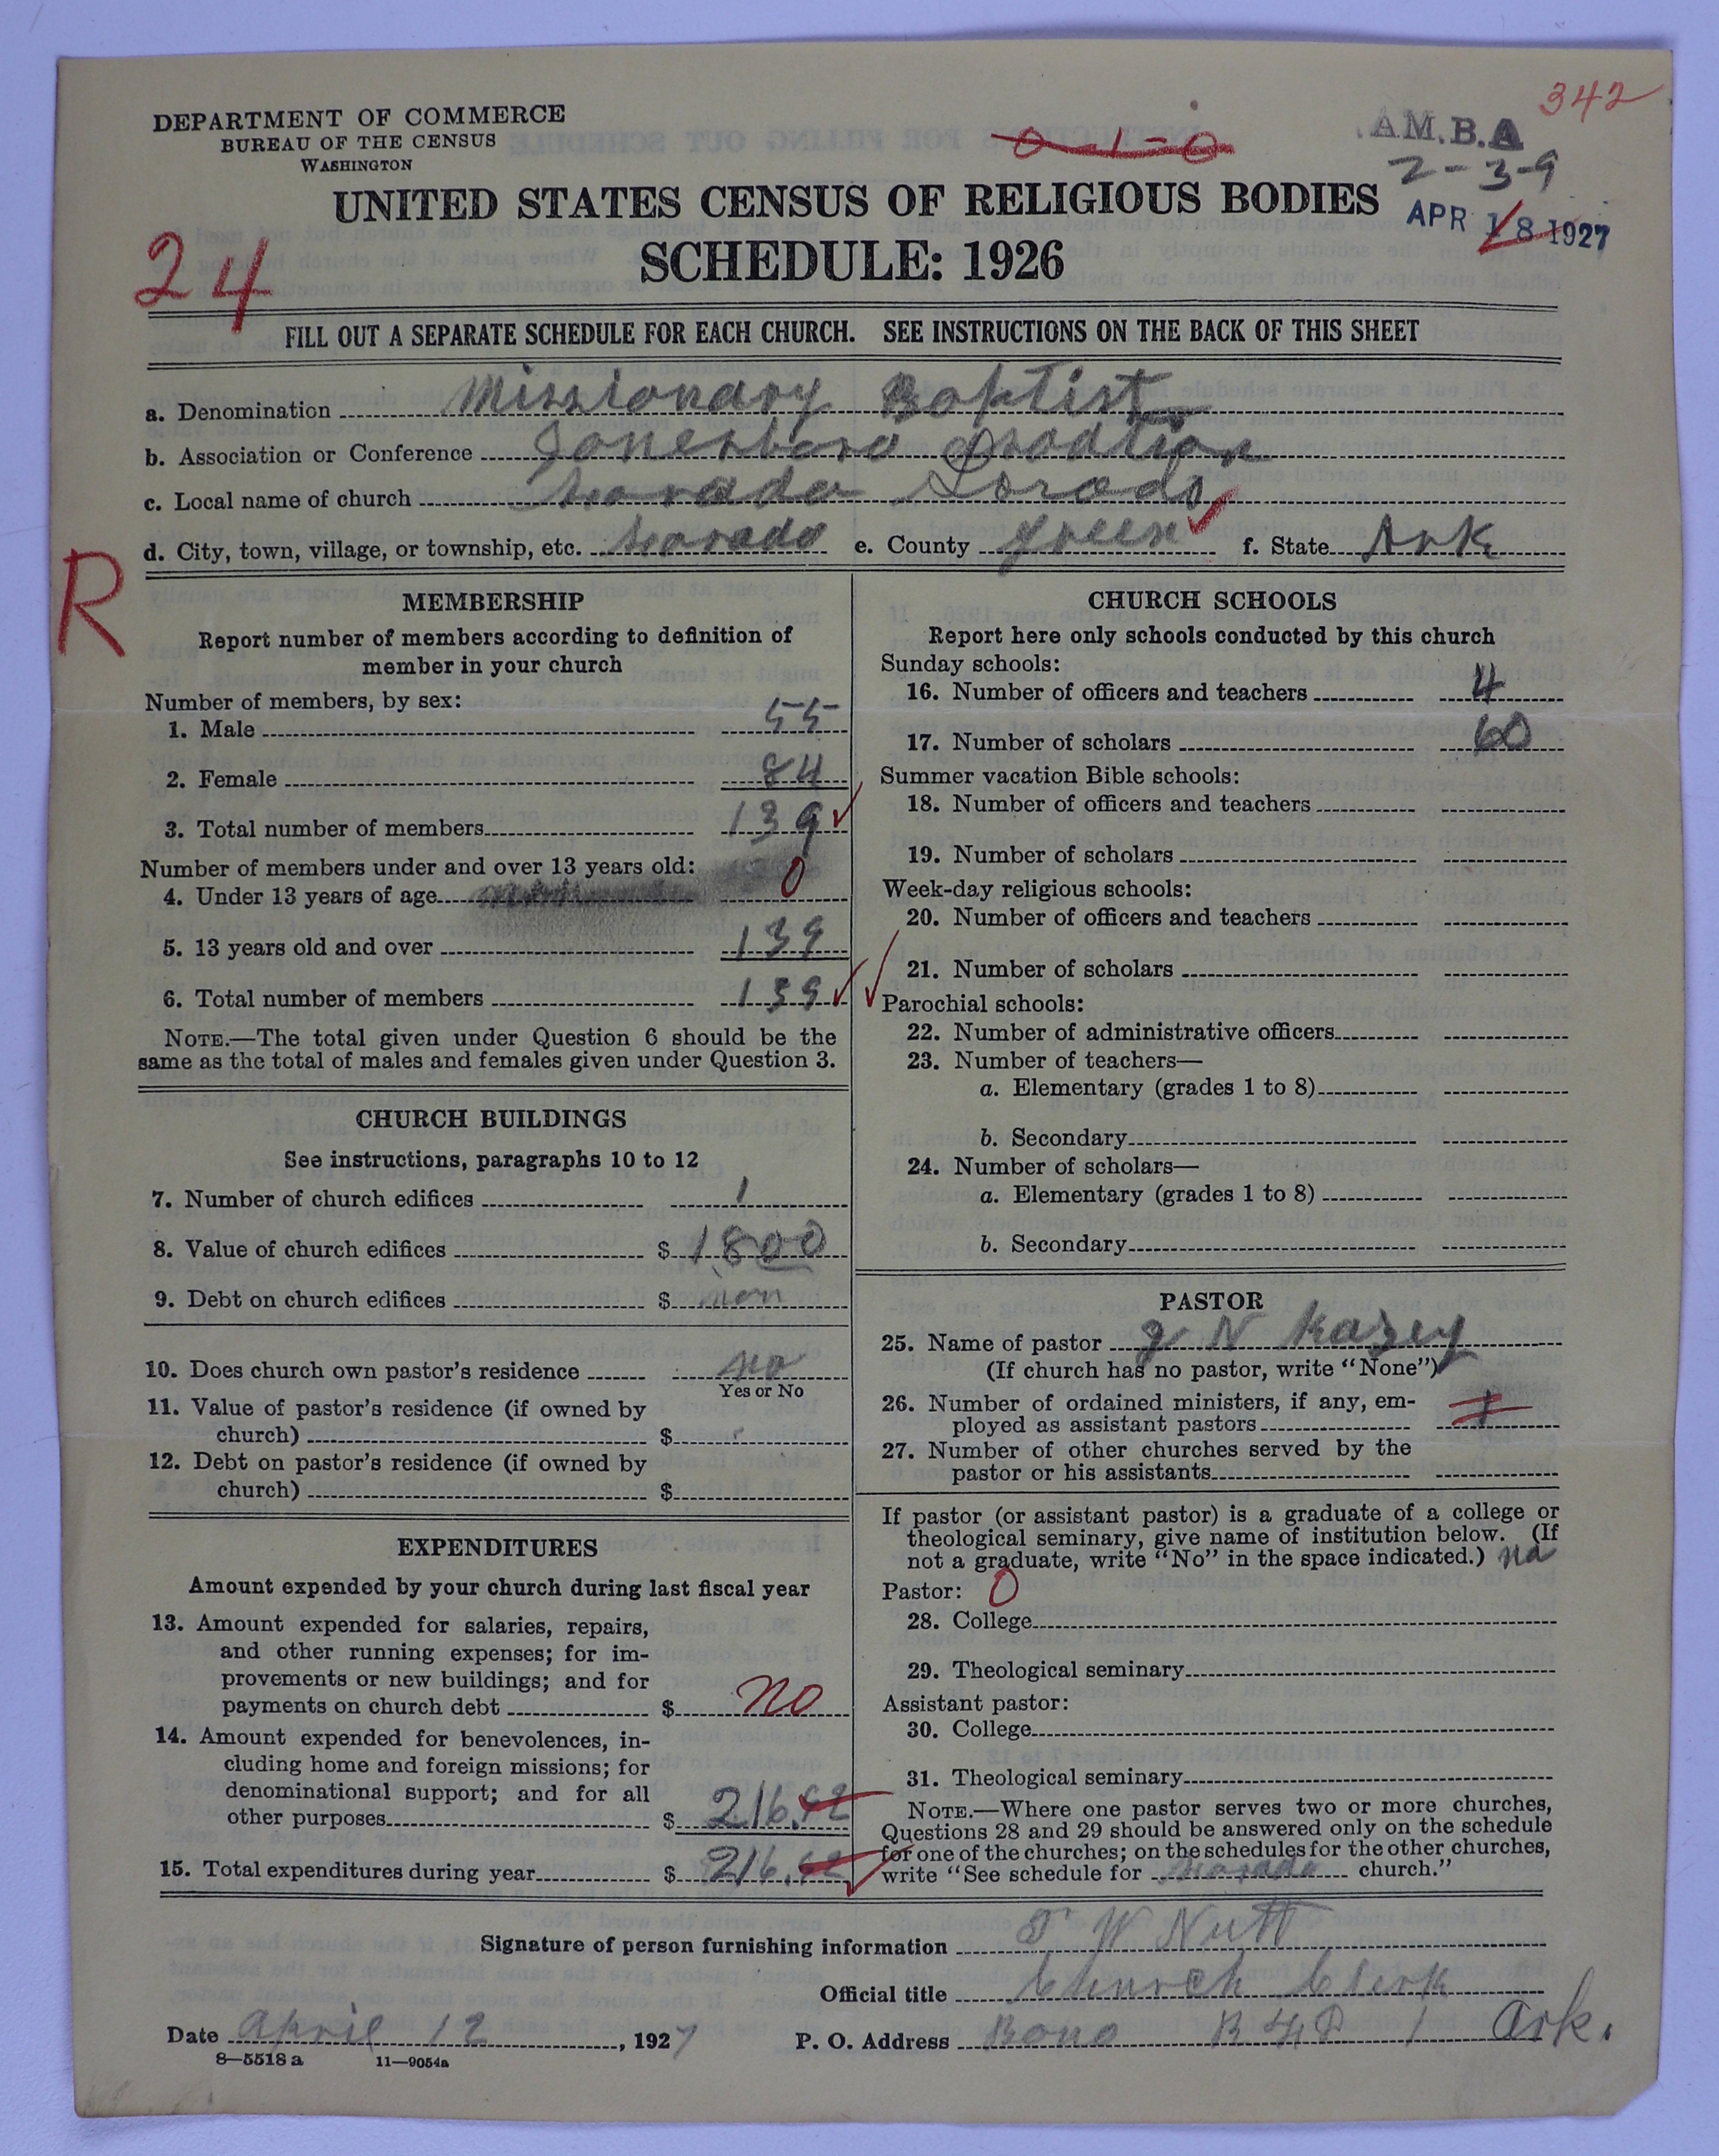 342
DEPARTMENT OF COMMERCE
BUREAU OF THE CENSUS
WASHINGTON
0-1-0
AM.B.A
2-3-9
UNITED STATES CENSUS OF RELIGIOUS BODIES
APR 18 1927
SCHEDULE: 1926
24
FILL OUT A SEPARATE SCHEDULE FOR EACH CHURCH. SEE INSTRUCTIONS ON THE BACK OF THIS SHEET
a. Denomination Missionary Baptist
b. Association or Conference Jonesboro
c. Local name of church Lorado
d. City, town, village, or township, etc. Lorado e. County Green f. State Ark
R
MEMBERSHIP
Report number of members according to definition of
member in your church
Number of members, by sex:
1. Male 55
2. Female 84
3. Total number of members 139
Number of members under and over 13 years old:
4. Under 13 years of age 0
5. 13 years old and over 139
6. Total number of members 139
NOTE.—The total given under Question 6 should be the
same as the total of males and females given under Question 3.
CHURCH BUILDINGS
See instructions, paragraphs 10 to 12
7. Number of church edifices 1
8. Value of church edifices $ 1800
9. Debt on church edifices $ non
10. Does church own pastor's residence no
Yes or No
11. Value of pastor's residence (if owned by
church) $
12. Debt on pastor's residence (if owned by
church) $
EXPENDITURES
Amount expended by your church during last fiscal year
13. Amount expended for salaries, repairs,
and other running expenses; for im-
provements or new buildings; and for
payments on church debt $ no
14. Amount expended for benevolences, in-
cluding home and foreign missions; for
denominational support; and for all
other purposes $ 216.
15. Total expenditures during year $ 216.
CHURCH SCHOOLS
Report here only schools conducted by this church
Sunday schools:
16. Number of officers and teachers 4
17. Number of scholars 60
Summer vacation Bible schools:
18. Number of officers and teachers
19. Number of scholars
Week-day religious schools:
20. Number of officers and teachers
21. Number of scholars
Parochial schools:
22. Number of administrative officers
23. Number of teachers—
a. Elementary (grades 1 to 8)
b. Secondary
24. Number of scholars—
a. Elementary (grades 1 to 8)
b. Secondary
PASTOR
25. Name of pastor J N Kazey
(If church has no pastor, write "None")
26. Number of ordained ministers, if any, em-
ployed as assistant pastors 1
27. Number of other churches served by the
pastor or his assistants
If pastor (or assistant pastor) is a graduate of a college or
theological seminary, give name of institution below. (If
not a graduate, write "No" in the space indicated.) no
Pastor: 0
28. College
29. Theological seminary
Assistant pastor:
30. College
31. Theological seminary
NOTE.—Where one pastor serves two or more churches,
Questions 28 and 29 should be answered only on the schedule
for one of the churches; on the schedules for the other churches,
write "See schedule for Lorado church."
Signature of person furnishing information T W Nutt
Official title Church Clerk
Date April 12, 1927 P. O. Address Bono R 1 Ark.
8—5518 a 11—9054a